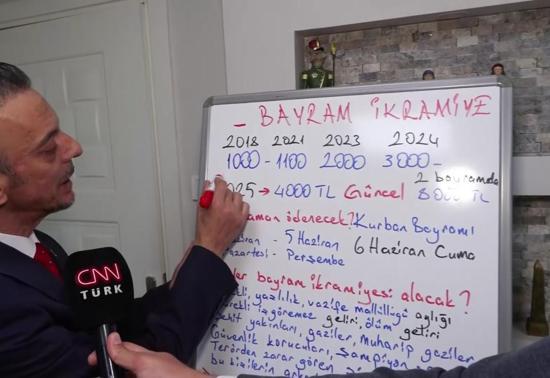 - BAYRAM İKRAMİYE
2018 2021 2023 2024
1000 - 1100 2000 3000 -
2 bayramda
025 → 4000 TL Güncel 8000 TL
aman ödenecek? Kurban Bayramı
Haziran - 5 Haziran 6 Haziran Cuma
azartesi - Perşembe
ler bayram ikramiyesi alacak?
ekli, yazlılık, vazife mallüllüğü aylığı
ürekli iş göremez geliri, ölüm geliri
ehit yakınları, gaziler, muharip gaziler
Güvenlik korucuları, şampiyon
Terörden zarar gören
bu kişilerin
CNN
TÜRK